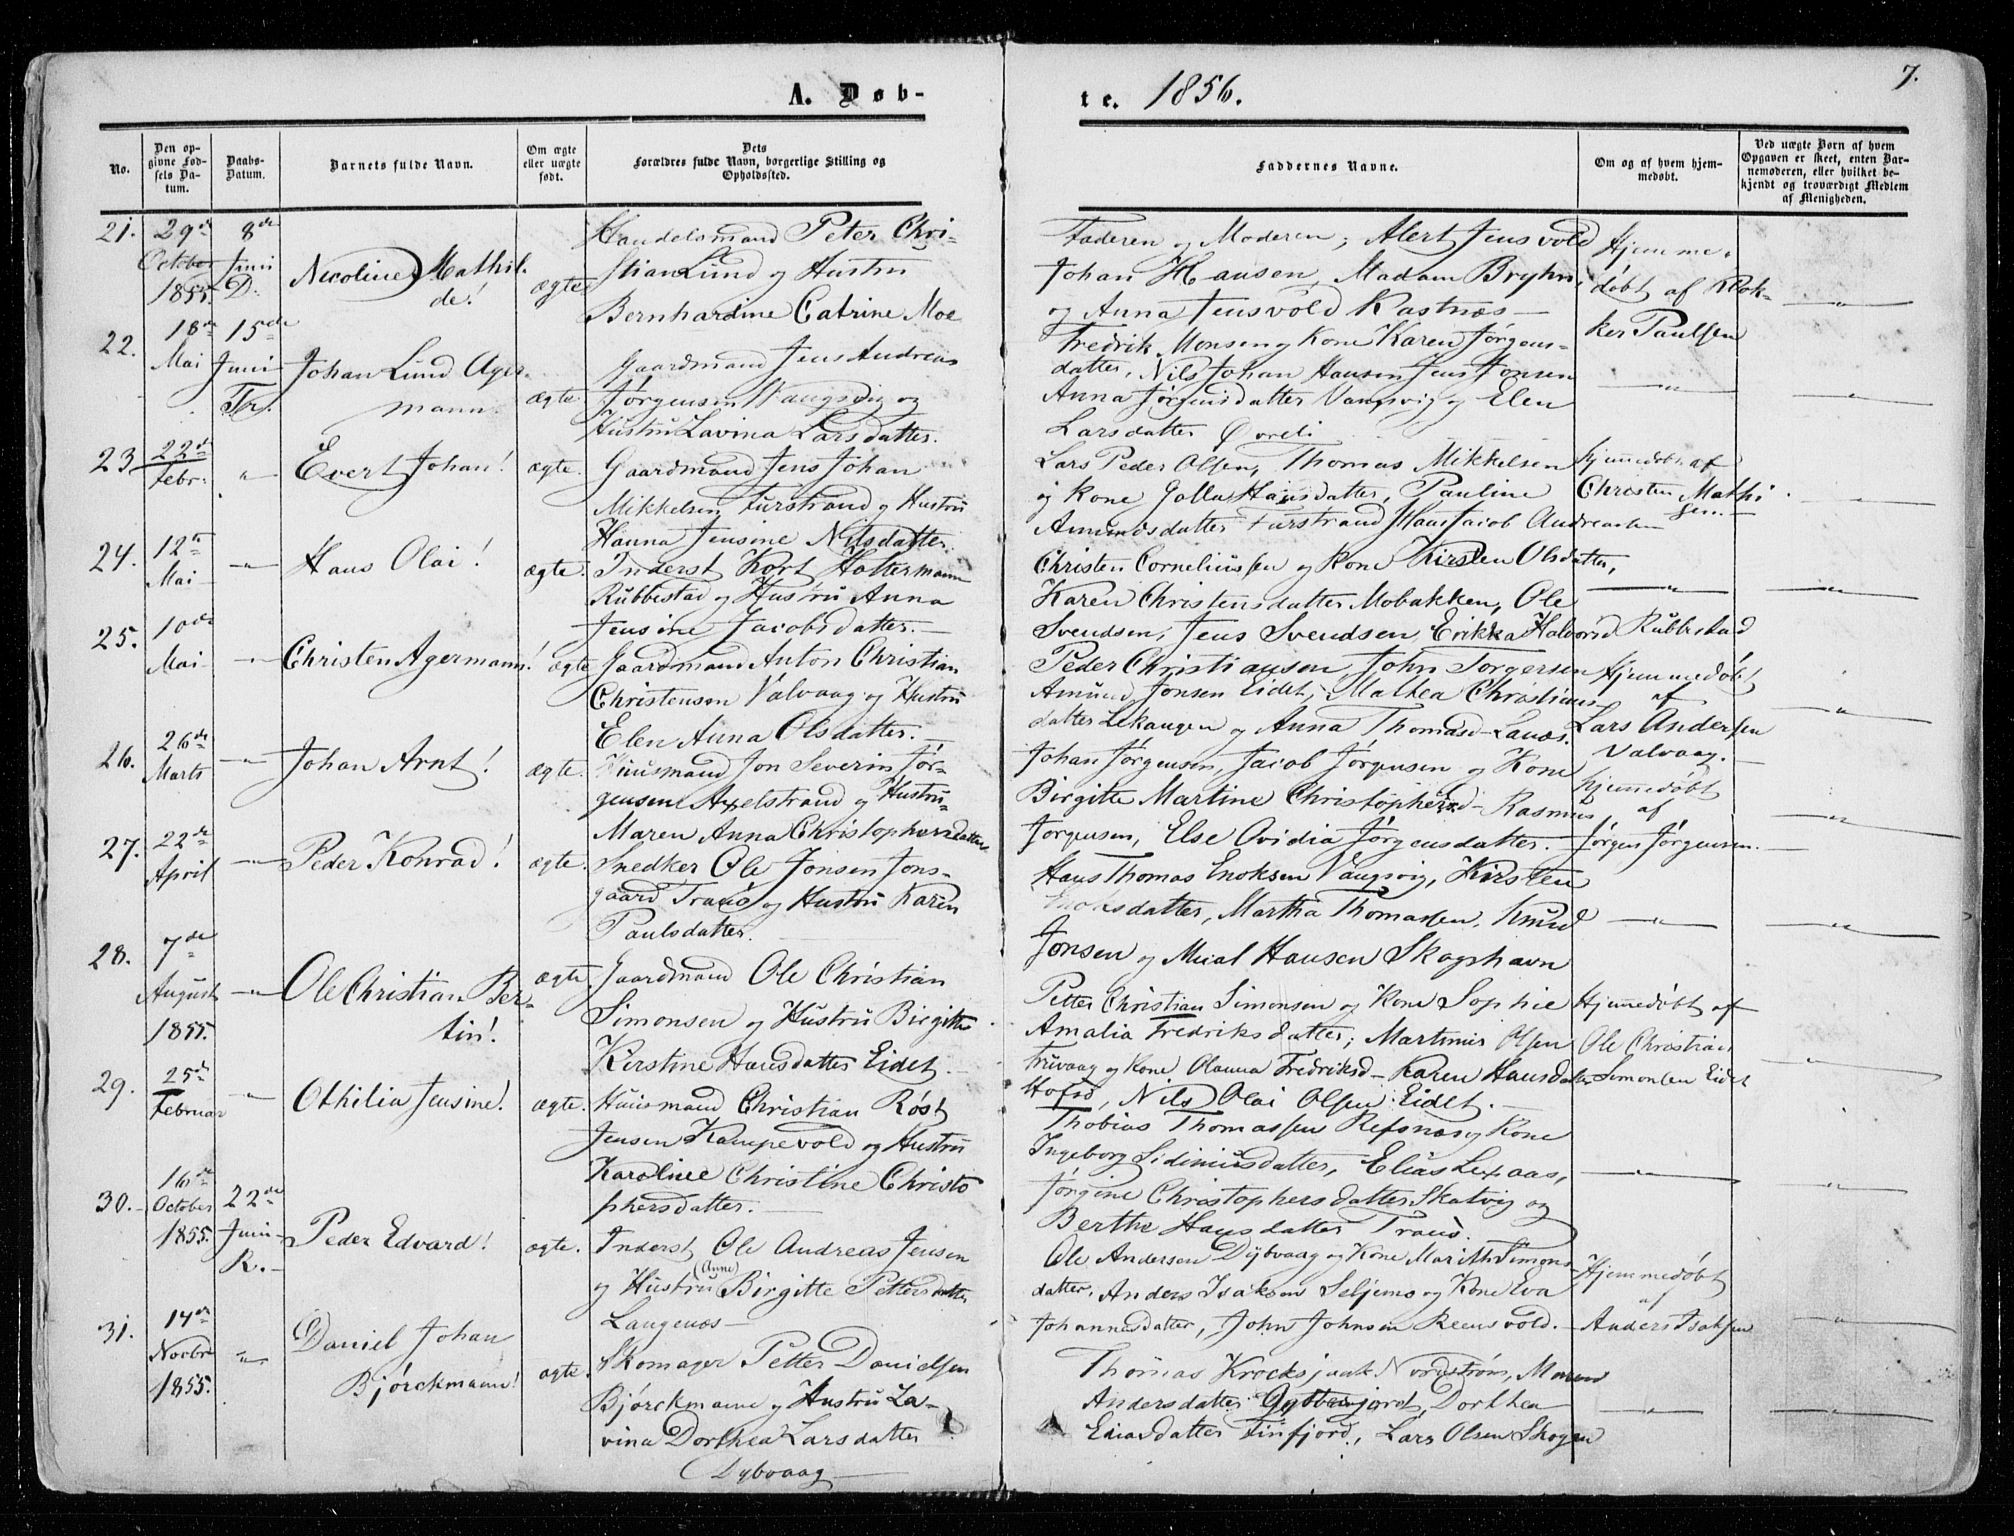 7.
A. Døb-
te. 1856.
No.
Den op-
givne Fød-
sels Da-
tum.
Daabs-
Datum.
Barnets fulde Navn.
Om ægte
eller uægte
født.
Dets
Forældres fulde Navn, borgerlige Stilling og
Opholdssted.
Faddernes Navne.
Om og af hvem hjem-
medøbt.
Ved uægte Børn af hvem
Opgaven er skeet, enten Bar-
nemoderen, eller hvilket be-
kjendt og troværdigt Medlem
af Menigheden.
21.
29de
October
1855.
8de
Juni
D.
Nicoline Mathil-
de!
ægte
Handelsmand Peter Chri-
stian Lund og Hustru
Bernhardine Catrine Moe
Faderen og Moderen, Alert Jensvold
Johan Hansen, Madam Bryhn,
og Anna Jensvold Kastnæs
Hjemme-
døbt af Klok-
ker Paulsen
22.
18de
Mai
15de
Juni
Tr.
Johan Lund Ager-
mann
ægte
Gaardmand Jens Andreas
Jørgensen Vangsvig og
Hustru Lavina Larsdatter.
Fredrik Monsen og Kone Karen Jørgens-
datter, Nils Johan Hansen, Jens Jonsen
Anna Jørgensdatter Vangsvig og Elen
Larsdatter Øvreli
23.
22de
Febr.
Evert Johan!
ægte.
Gaardmand Jens Johan
Mikkelsen Furstrand og Hustru
Hanna Jensine Nilsdatter.
Lars Peder Olsen, Thomas Mikkelsen
og Kone Golla Hansdatter, Pauline
Amundsdatter Furstrand, Hans Jacob Andreassen
Hjemmedøbt af
Christen Mathi-
sen
24.
12te
Mai
Hans Olai!
ægte.
Inderst Kort Holtermann
Rubbestad og Hustru Anna
Jensine Jacobsdatter.
Christen Corneliussen og Kone Kirsten Olsdatter,
Karen Christensdatter Mobakken, Ole
Svendsen, Jens Svendsen, Erikka Halvorsd Rubbestad
25.
10de
Mai
Christen Agermann!
ægte
Gaardmand Anton Christian
Christensen Valvaag og Hustru
Elen Anna Olsdatter.
Peder Christiansen, John Torgersen
Amund Jonsen Eidet, Mathea Christians-
datter Lekangen og Anna Thomasd Lanæs.
Hjemmedøbt
af
Lars Andersen
Valvaag.
26.
26de
Marts
Johan Arnt!
ægte.
Huusmand Jon Severin Jør-
gensen Axelstrand og Hustru
Maren Anna Christophersdatter
Johan Jørgensen, Jacob Jørgensen og Kone
Birgitte Martine Christophersd- Rasmus
Jørgensen, Else Ovidia Jørgensdatter.
Hjemmedøbt
af
Jørgen Jørgensen.
27.
22de
April
Peder Konrad!
ægte.
Snedker Ole Jonsen Jons-
gaard Tranø og Hustru Karen
Paulsdatter.
Hans Thomas Enoksen Vangsvig, Kirsten
Enoksdatter, Martha Thomassen, Knud
Jonsen og Mical Hansen Skogshavn
28.
7de
August
1855.
Ole Christian Ber-
tin!
ægte.
Gaardmand Ole Christian
Simonsen og Hustru Birgitte
Kirstine Hansdatter Eidet.
Petter Christian Simonsen og Kone Sophie
Amalia Fredriksdatter; Martinus Olsen
Truvaag og Kone Olanna Fredriksd- Karen Hansdatter
Hofsø, Nils Olai Olsen Eidet.
Hjemmedøbt af
Ole Christian
Simonsen Eidet
29.
25de
Februar
Othilia Jensine!
ægte.
Huusmand Christian Røst
Jensen Kampevold og Hustru
Karoline Christine Christo
phersdatter.
Thobias Thomassen Refsnæs og Kone
Ingeborg Sidiniusdatter, Elias Lexaas,
Jørgine Christophersdatter Skatvig og
Berthe Hansdatter Tranø.
30.
16de
October
1855.
22de
Juni
R.
Peder Edvard!
ægte.
Inderst Ole Andreas Jensen
(Anne)
og Hustru Birgitte Pettersdatter
Langenæs
Ole Andersen Dybvaag og Kone Marith Simons-
datter, Anders Isaksen Seljemo og Kone Eva
Johannesdatter, John Johnsen Reensvold.
Hjemmedøbt
af
Anders Isaksen
31.
14de
Novbr
1855.
Daniel Johan
Bjørckmann!
ægte.
Skomager Petter Danielsen
Bjørckmann og Hustru La-
vina Dorthea Larsdatter
Dybvaag
Thomas Krocksjaak Nordstrøm, Maren
Andersdatter Gybtenjord, Dorthea
Eliasdatter Finfjord, Lars Olsen Skogen